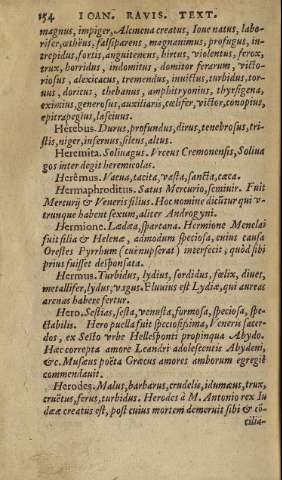 154 IOAN. RAVIS. TEXT.
magnus, impiger, Alcmena creatus, Ioue natus, labo-
rifer, œthëus, falsiparens, magnanimus, profugus, in-
trepidus, fortis, anguitenens, hirtus, violentus, ferox,
trux, horridus, indomitus, domitor ferarum, victo-
riosus, alexicacus, tremendus, inuictus, turbidus, tor-
uus, doricus, thebanus, amphitryonius, thyrsigena,
eximius, generosus, auxiliaris, cœlifer, victor, conopius,
epitrapegius, lasciuus.
Herebus. Durus, profundus, dirus, tenebrosus, tri-
stis, niger, infernus, silens, altus.
Heremita. Soliuagus. Vrceus Cremonensis, Soliua
gos inter degit heremicolas.
Herêmus. Vacua, tacita, vasta, sancta, cæca.
Hermaphroditus. Satus Mercurio, semiuir. Fuit
Mercurij & Veneris filius. Hoc nomine dicūtur qui v-
trunque habent sexum, aliter Androgyni.
Hermione. Ledæa, spartana. Hermione Menelai
fuit filia & Helenæ, admodum speciosa, cuius causa
Orestes Pyrrhum (cui nupserat) interfecit, quòd sibi
prius fuisset desponsata.
Hermus. Turbidus, lydius, sordidus, fœlix, diues,
metallifer, lydus, vagus. Fluuius est Lydiæ, qui aureas
arenas habere fertur.
Hero. Sestias, sesta, venusta, formosa, speciosa, spe-
ctabilis. Hero puella fuit speciosissima, Veneris sacer-
dos, ex Sesto vrbe Hellesponti propinqua Abydo.
Hæc correpta amore Leandri adolescentis Abydeni,
&c. Musæus poëta Græcus amores amborum egregiè
commendauit.
Herodes. Malus, barbarus, crudelis, idumæus, trux,
cruētus, ferus, turbidus. Herodes à M. Antonio rex Iu
dææ creatus est, post cuius mortem demeruit sibi & cō-
cilia-